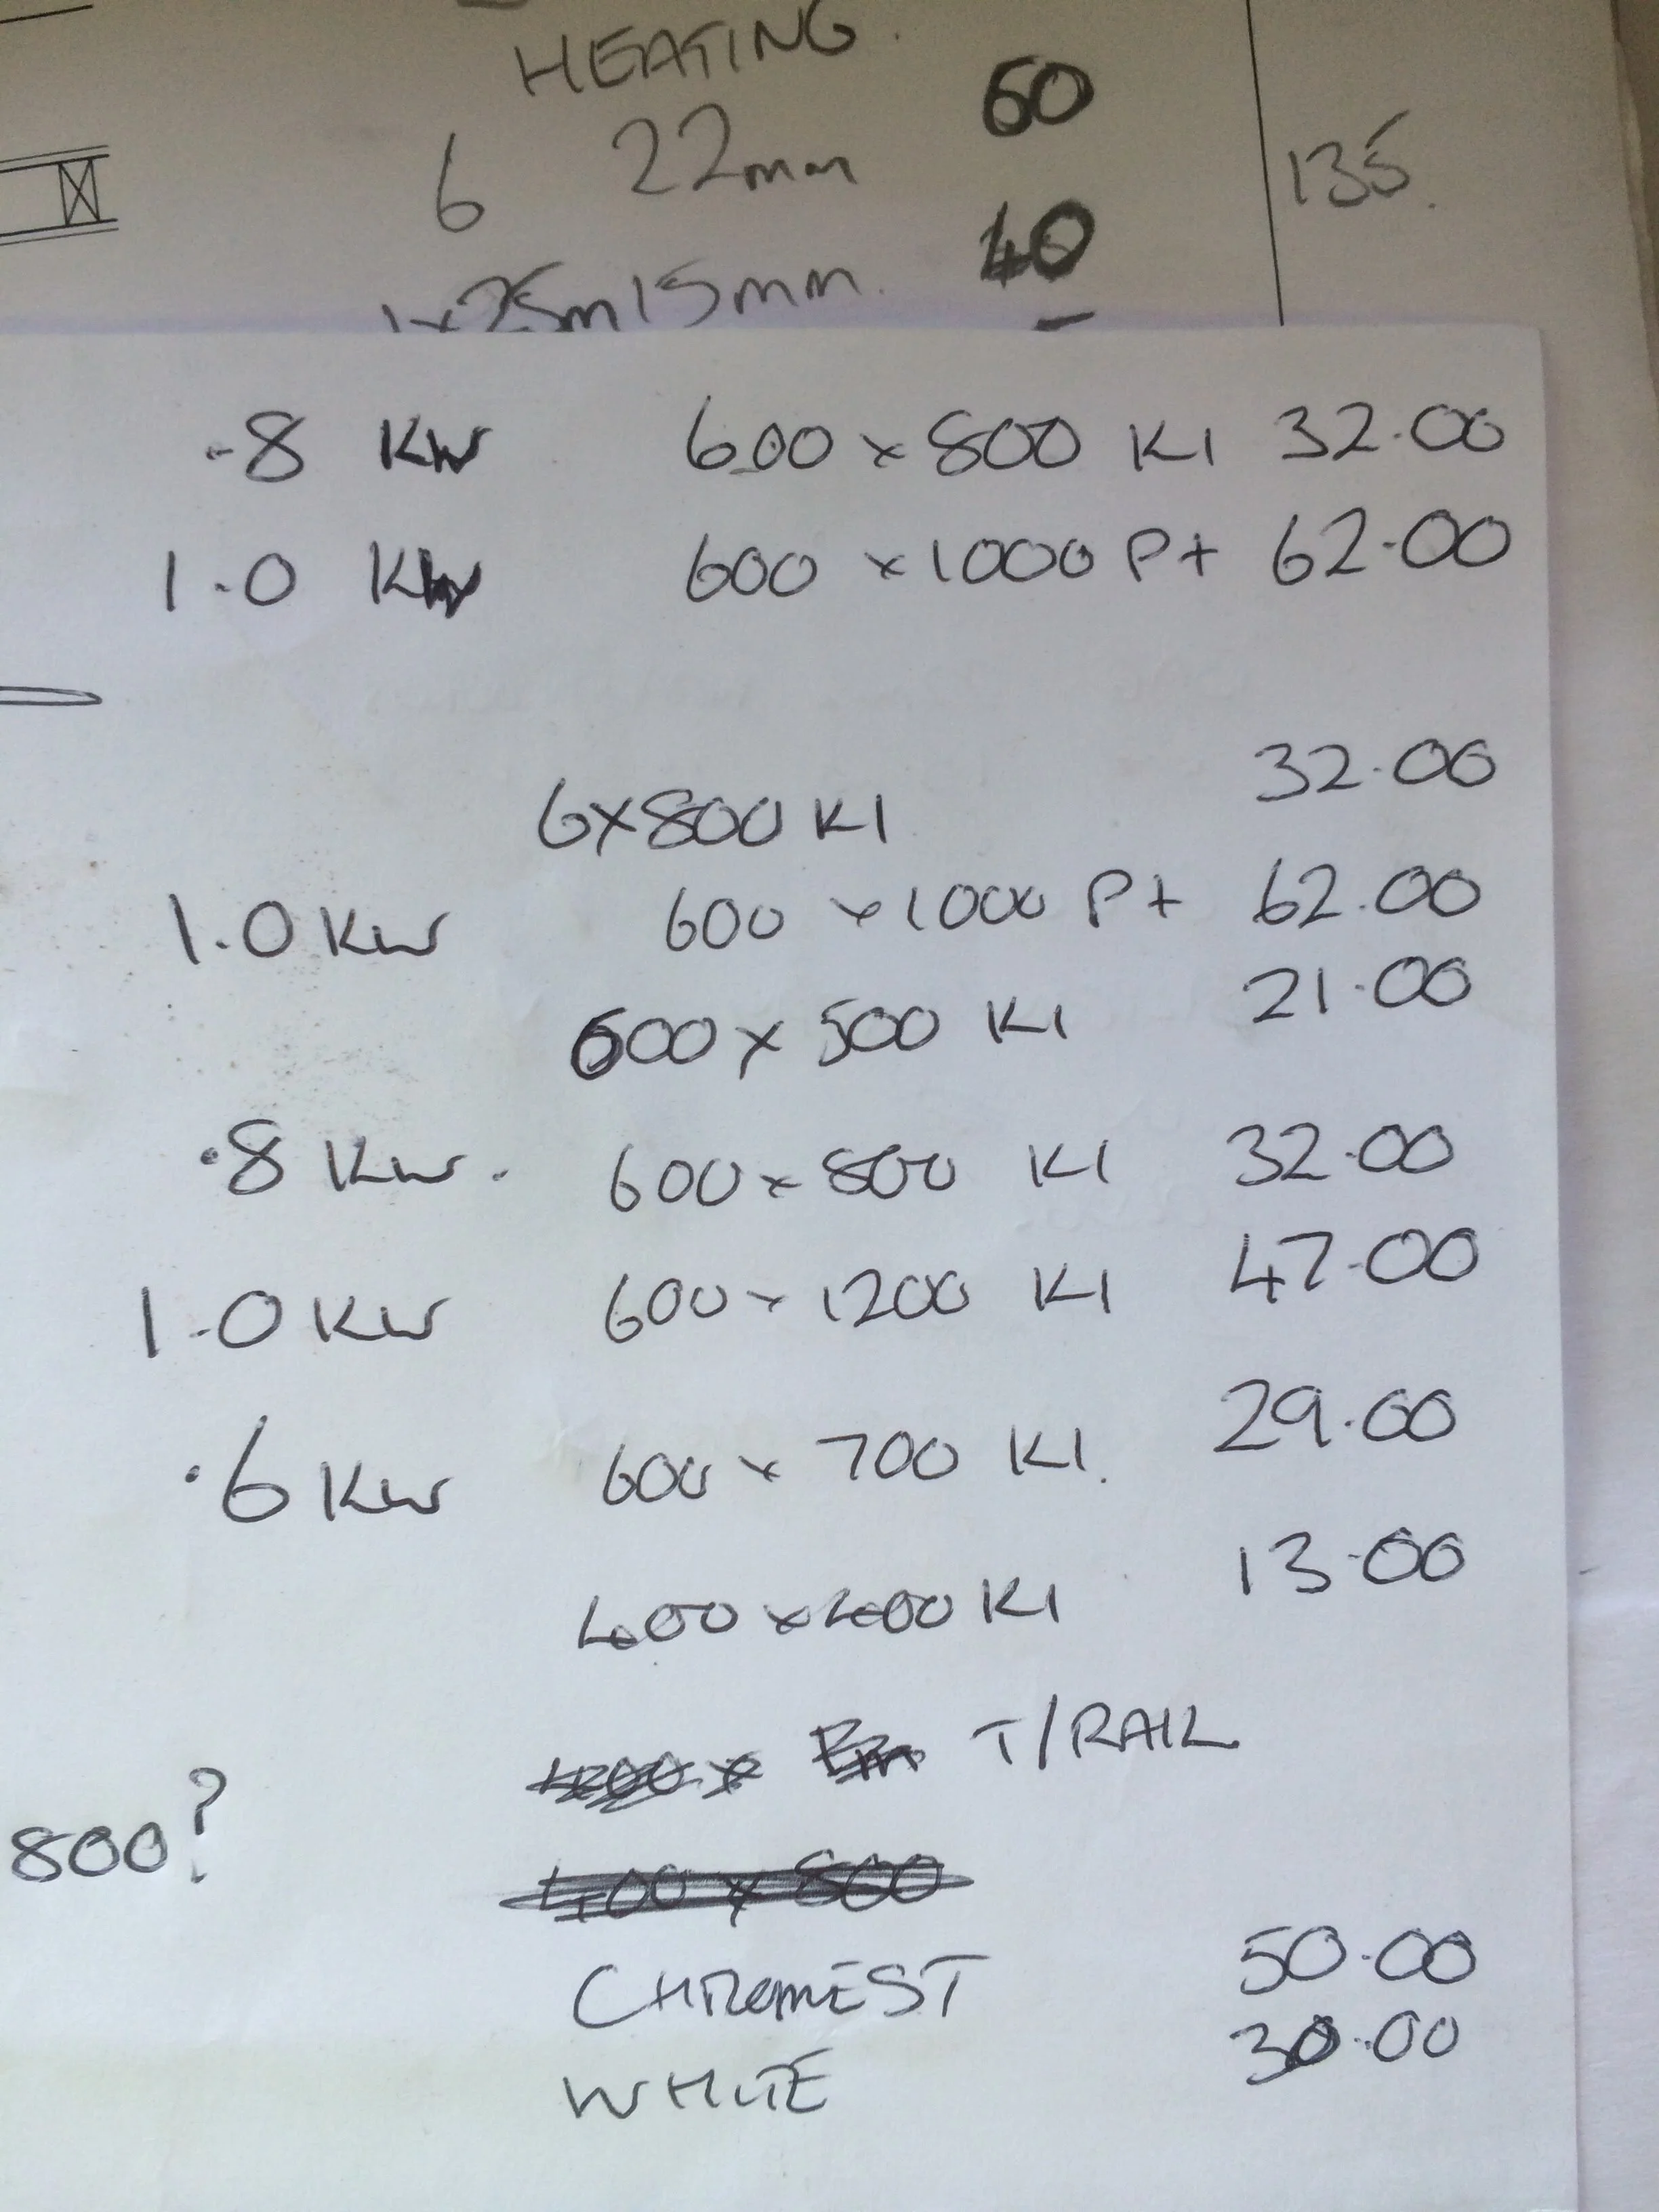 HEATING.
6 22mm 60
135.
1x25m15mm. 40
.8 KW 600 x 800 K1 32.00
1.0 KW 600 x 1000 P+ 62.00
6x800 K1 32.00
1.0 KW 600 x 1000 P+ 62.00
600 x 500 K1 21.00
.8 KW. 600 x 800 K1 32.00
1.0 KW 600 x 1200 K1 47.00
.6 KW 600 x 700 K1. 29.00
400 x 400 K1 13.00
T/RAIL
800?
400 x 800
CHROMEST 50.00
WHITE 30.00